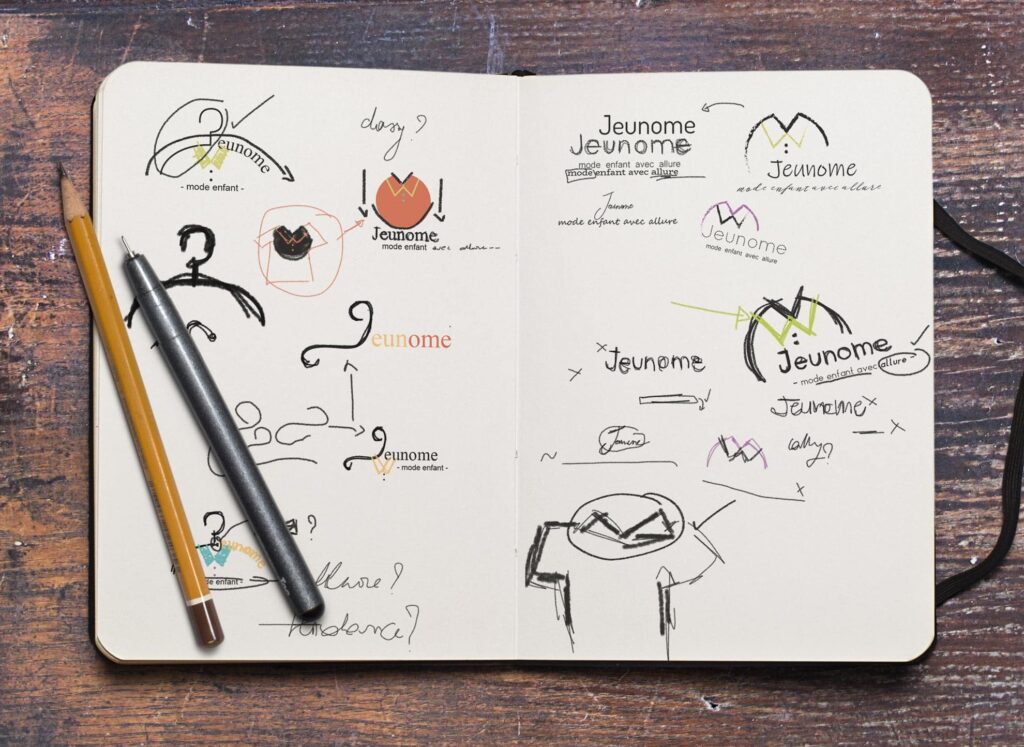 eunome
- mode enfant -
Jeunome
mode enfant avec allure --
eunome
eunome
- mode enfant -
?
eunome
de enfant -
Jeunome
Jeunome
mode enfant avec allure
mode enfant avec allure
Jeunome
mode enfant avec allure
Jeunome
mode enfant avec allure
Jeunome
mode enfant avec allure
Jeunome
Jeunome
- mode enfant avec allure -
Jeunome